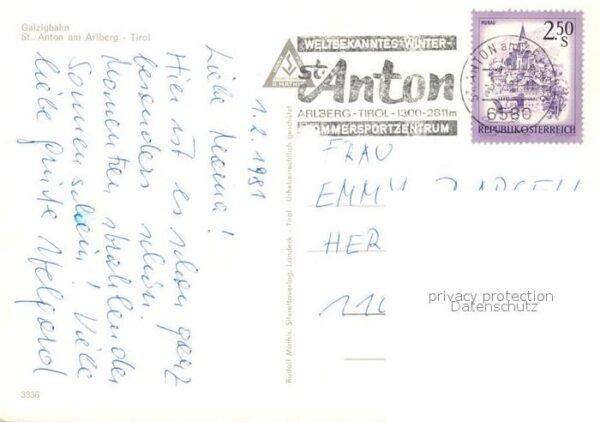 Galzigbahn
St. Anton am Arlberg - Tirol
1.2.1981
Liebe Mama!
Hier ist es schon ganz
besonders schön.
Momentan strahlender
Sonnenschein! Viele
liebe Grüße Helgard
3336
Rudolf Mathis, Silvrettaverlag, Landeck - Tirol Urheberrechtlich geschützt
R. MATHIS
WELTBEKANNTES WINTER-
St. Anton
ARLBERG-TIROL-1300-2811m
SOMMERSPORTZENTRUM
ST. ANTON am
6580
MURAU
2.50
S
REPUBLIK ÖSTERREICH
FRAU
EMMY
HER
110
privacy protection
Datenschutz